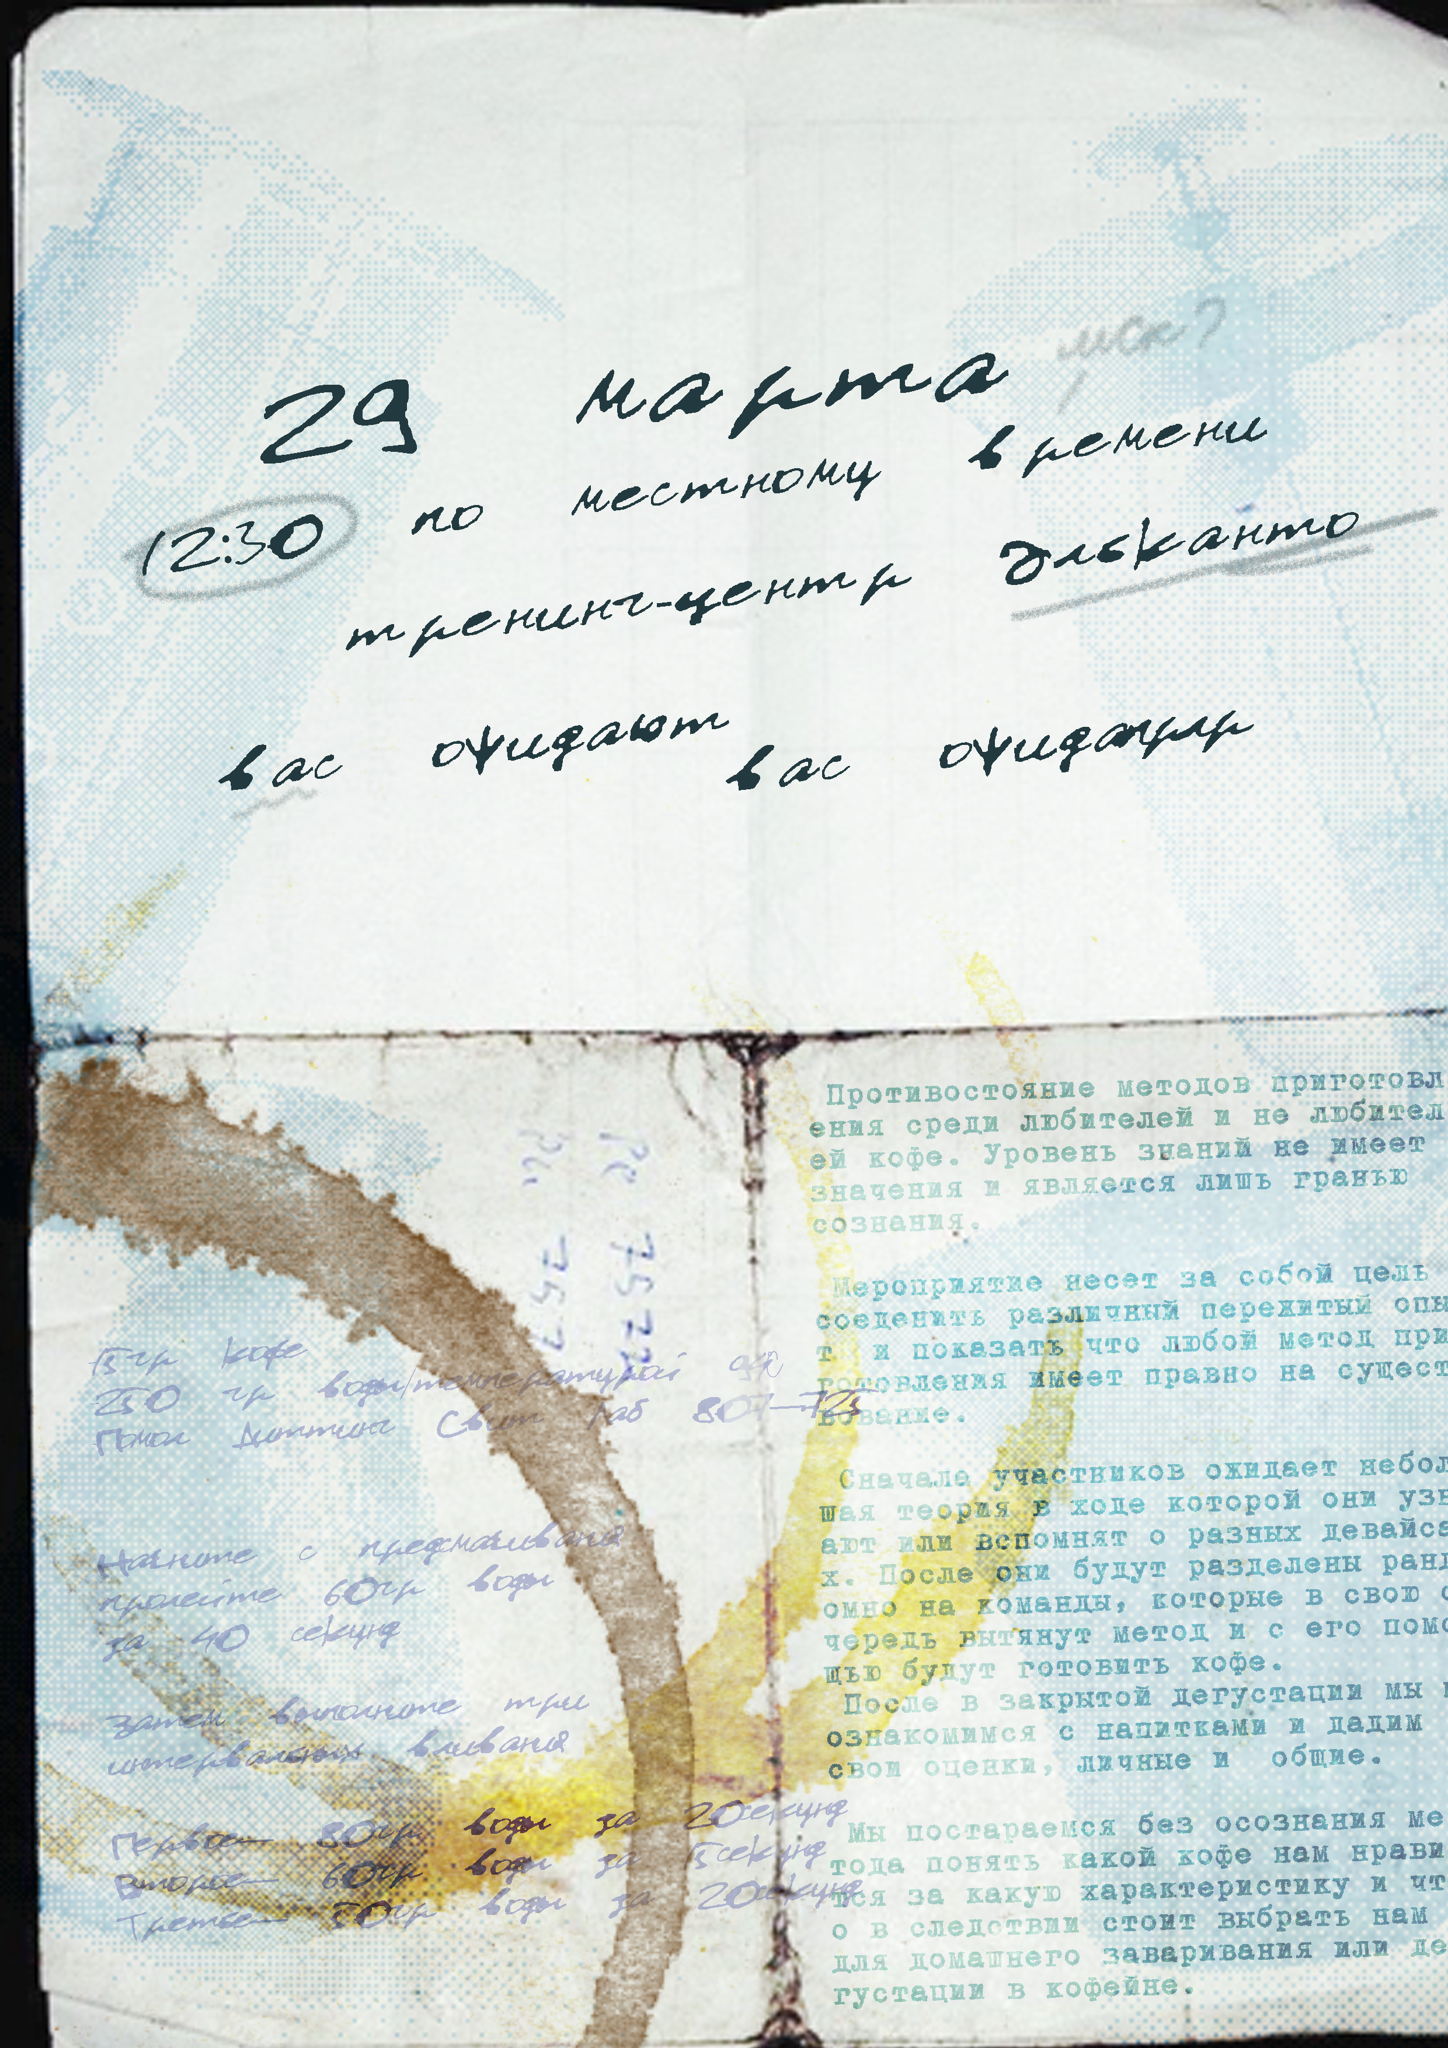 29 марта
мск?
12:30 по местному времени
тренинг-центр Эльканто
вас ожидают вас ожидают
15гр кофе
250 гр воды/температурой
Помол Диттинг Свит Лаб 807-725
Начните с предсмачивания
пролейте 60гр воды
за 40 секунд
затем выполните три
интервальных вливания
Первое— 80гр воды за 20секунд
Второе— 60гр воды за 15секунд
Третье— 50гр воды за 20секунд
Противостояние методов приготовл
ения среди любителей и не любител
ей кофе. Уровень знаний не имеет
значения и является лишь гранью
сознания.
Мероприятие несет за собой цель
соеденить различный пережитый опы
т и показать что любой метод при
готовления имеет правно на сущест
вование.
Сначала участников ожидает небол
шая теория в ходе которой они узн
ают или вспомнят о разных девайса
х. После они будут разделены ранд
омно на команды, которые в свою о
чередь вытянут метод и с его помо
щью будут готовить кофе.
После в закрытой дегустации мы п
ознакомимся с напитками и дадим
свои оценки, личные и общие.
Мы постараемся без осознания ме
тода понять какой кофе нам нрави
тся за какую характеристику и чт
о в следствии стоит выбрать нам
для домашнего заваривания или де
густации в кофейне.